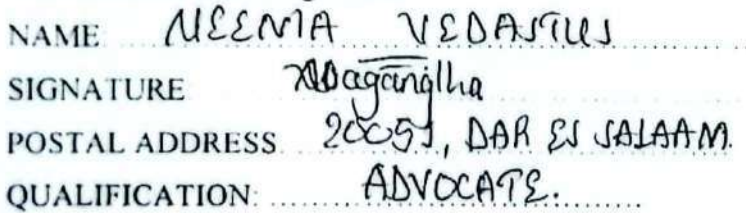 NAME NEEMA VEDASTUS
SIGNATURE
POSTAL ADDRESS 20051, DAR ES SALAAM.
QUALIFICATION: ADVOCATE.